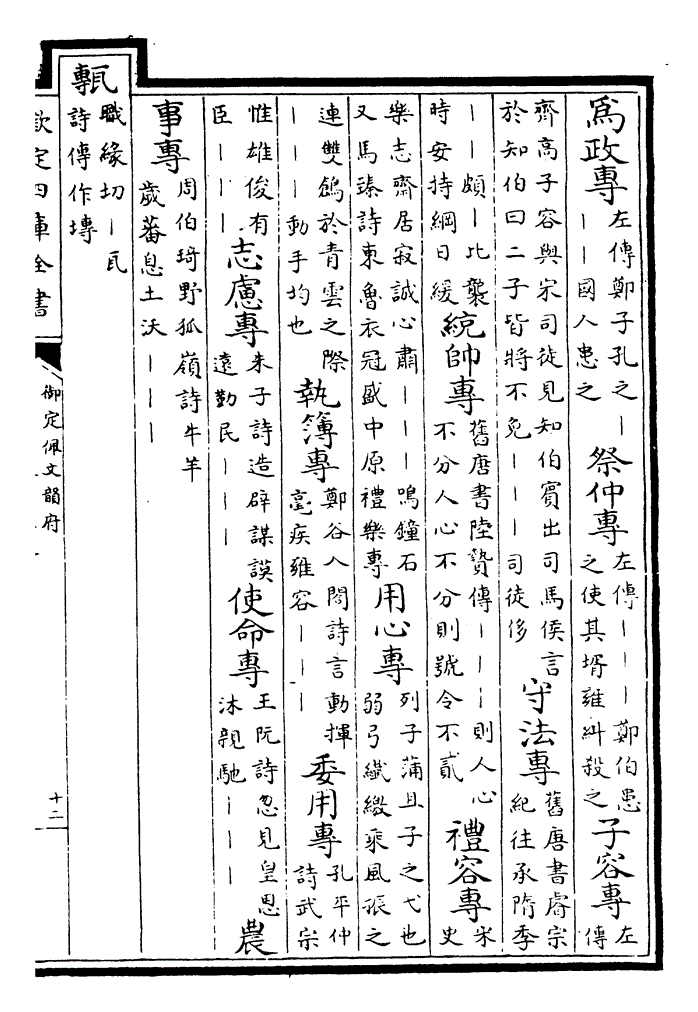 為政專左傳鄭子孔之丨丨丨國人患之祭仲專左傳丨丨丨鄭伯患之使其壻雍糾殺之子容專左傳
齊高子容與宋司徒見知伯賓出司馬侯言於知伯曰二子皆將不免丨丨丨司徒侈守法專舊唐書睿宗紀往承隋季
丨丨頗丨比襲時安持綱日緩統帥專舊唐書陸贄傳丨丨丨則人心不分人心不分則號令不貳禮容專宋史
樂志齋居寂誠心肅丨丨丨鳴鐘石又馬臻詩東魯衣冠盛中原禮樂專用心專列子蒲且子之弋也弱弓纎繳乘風振之
連雙鶬於青雲之際丨丨動手均也執簿專鄭谷入閤詩言動揮毫疾雍容丨丨丨委用專孔平仲詩武宗
惟雄俊有臣丨丨丨志慮專朱子詩造辟謀謨遠勤民丨丨丨使命專王阮詩忽見皇恩沐親馳丨丨丨農
事專周伯琦野狐嶺詩牛羊歲蕃息土沃丨丨丨
甎職緣切丨瓦詩傳作塼
欽定四庫全書
御定佩文韻府
十二